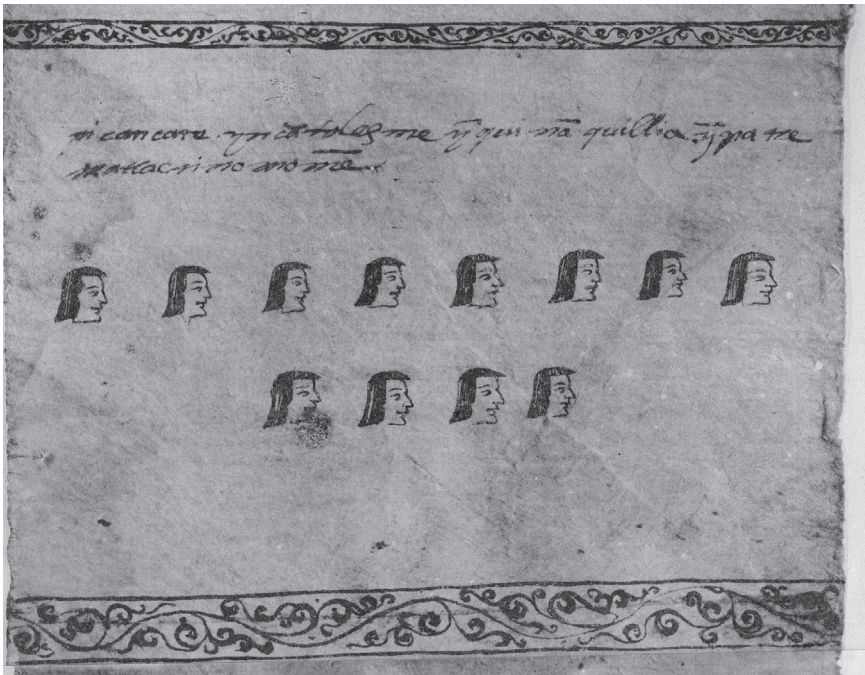 nican care yncātolesme ȳ qui nā quillia ȳ pa tre
matlactino mo mē